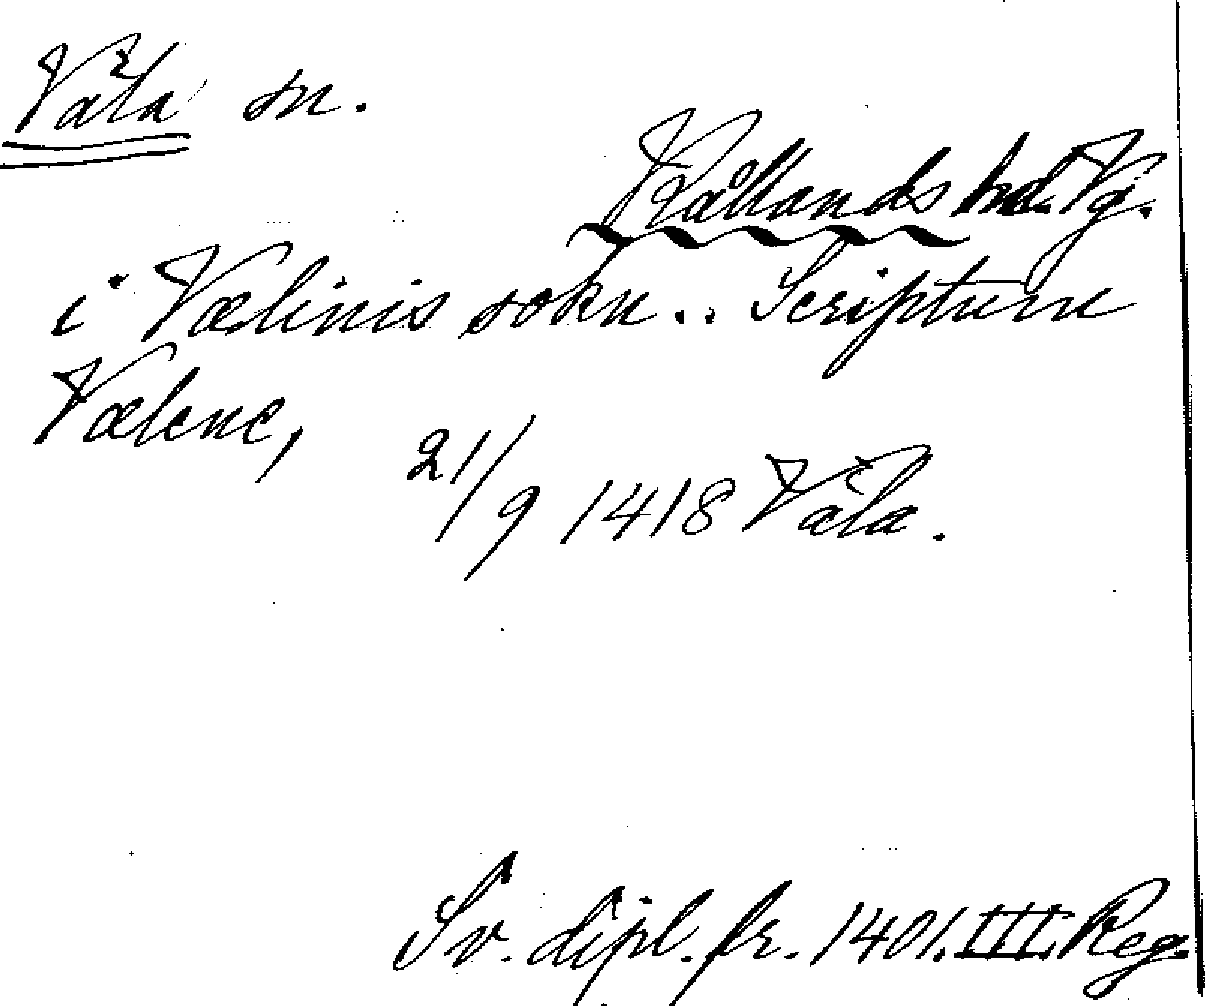 Våla sn.
Kållands hd. Vg.
i Vælinis sokn.. Scriptum
Vælene,
21/9 1418 Våla.
Sv. dipl. fr. 1401. III. Reg.